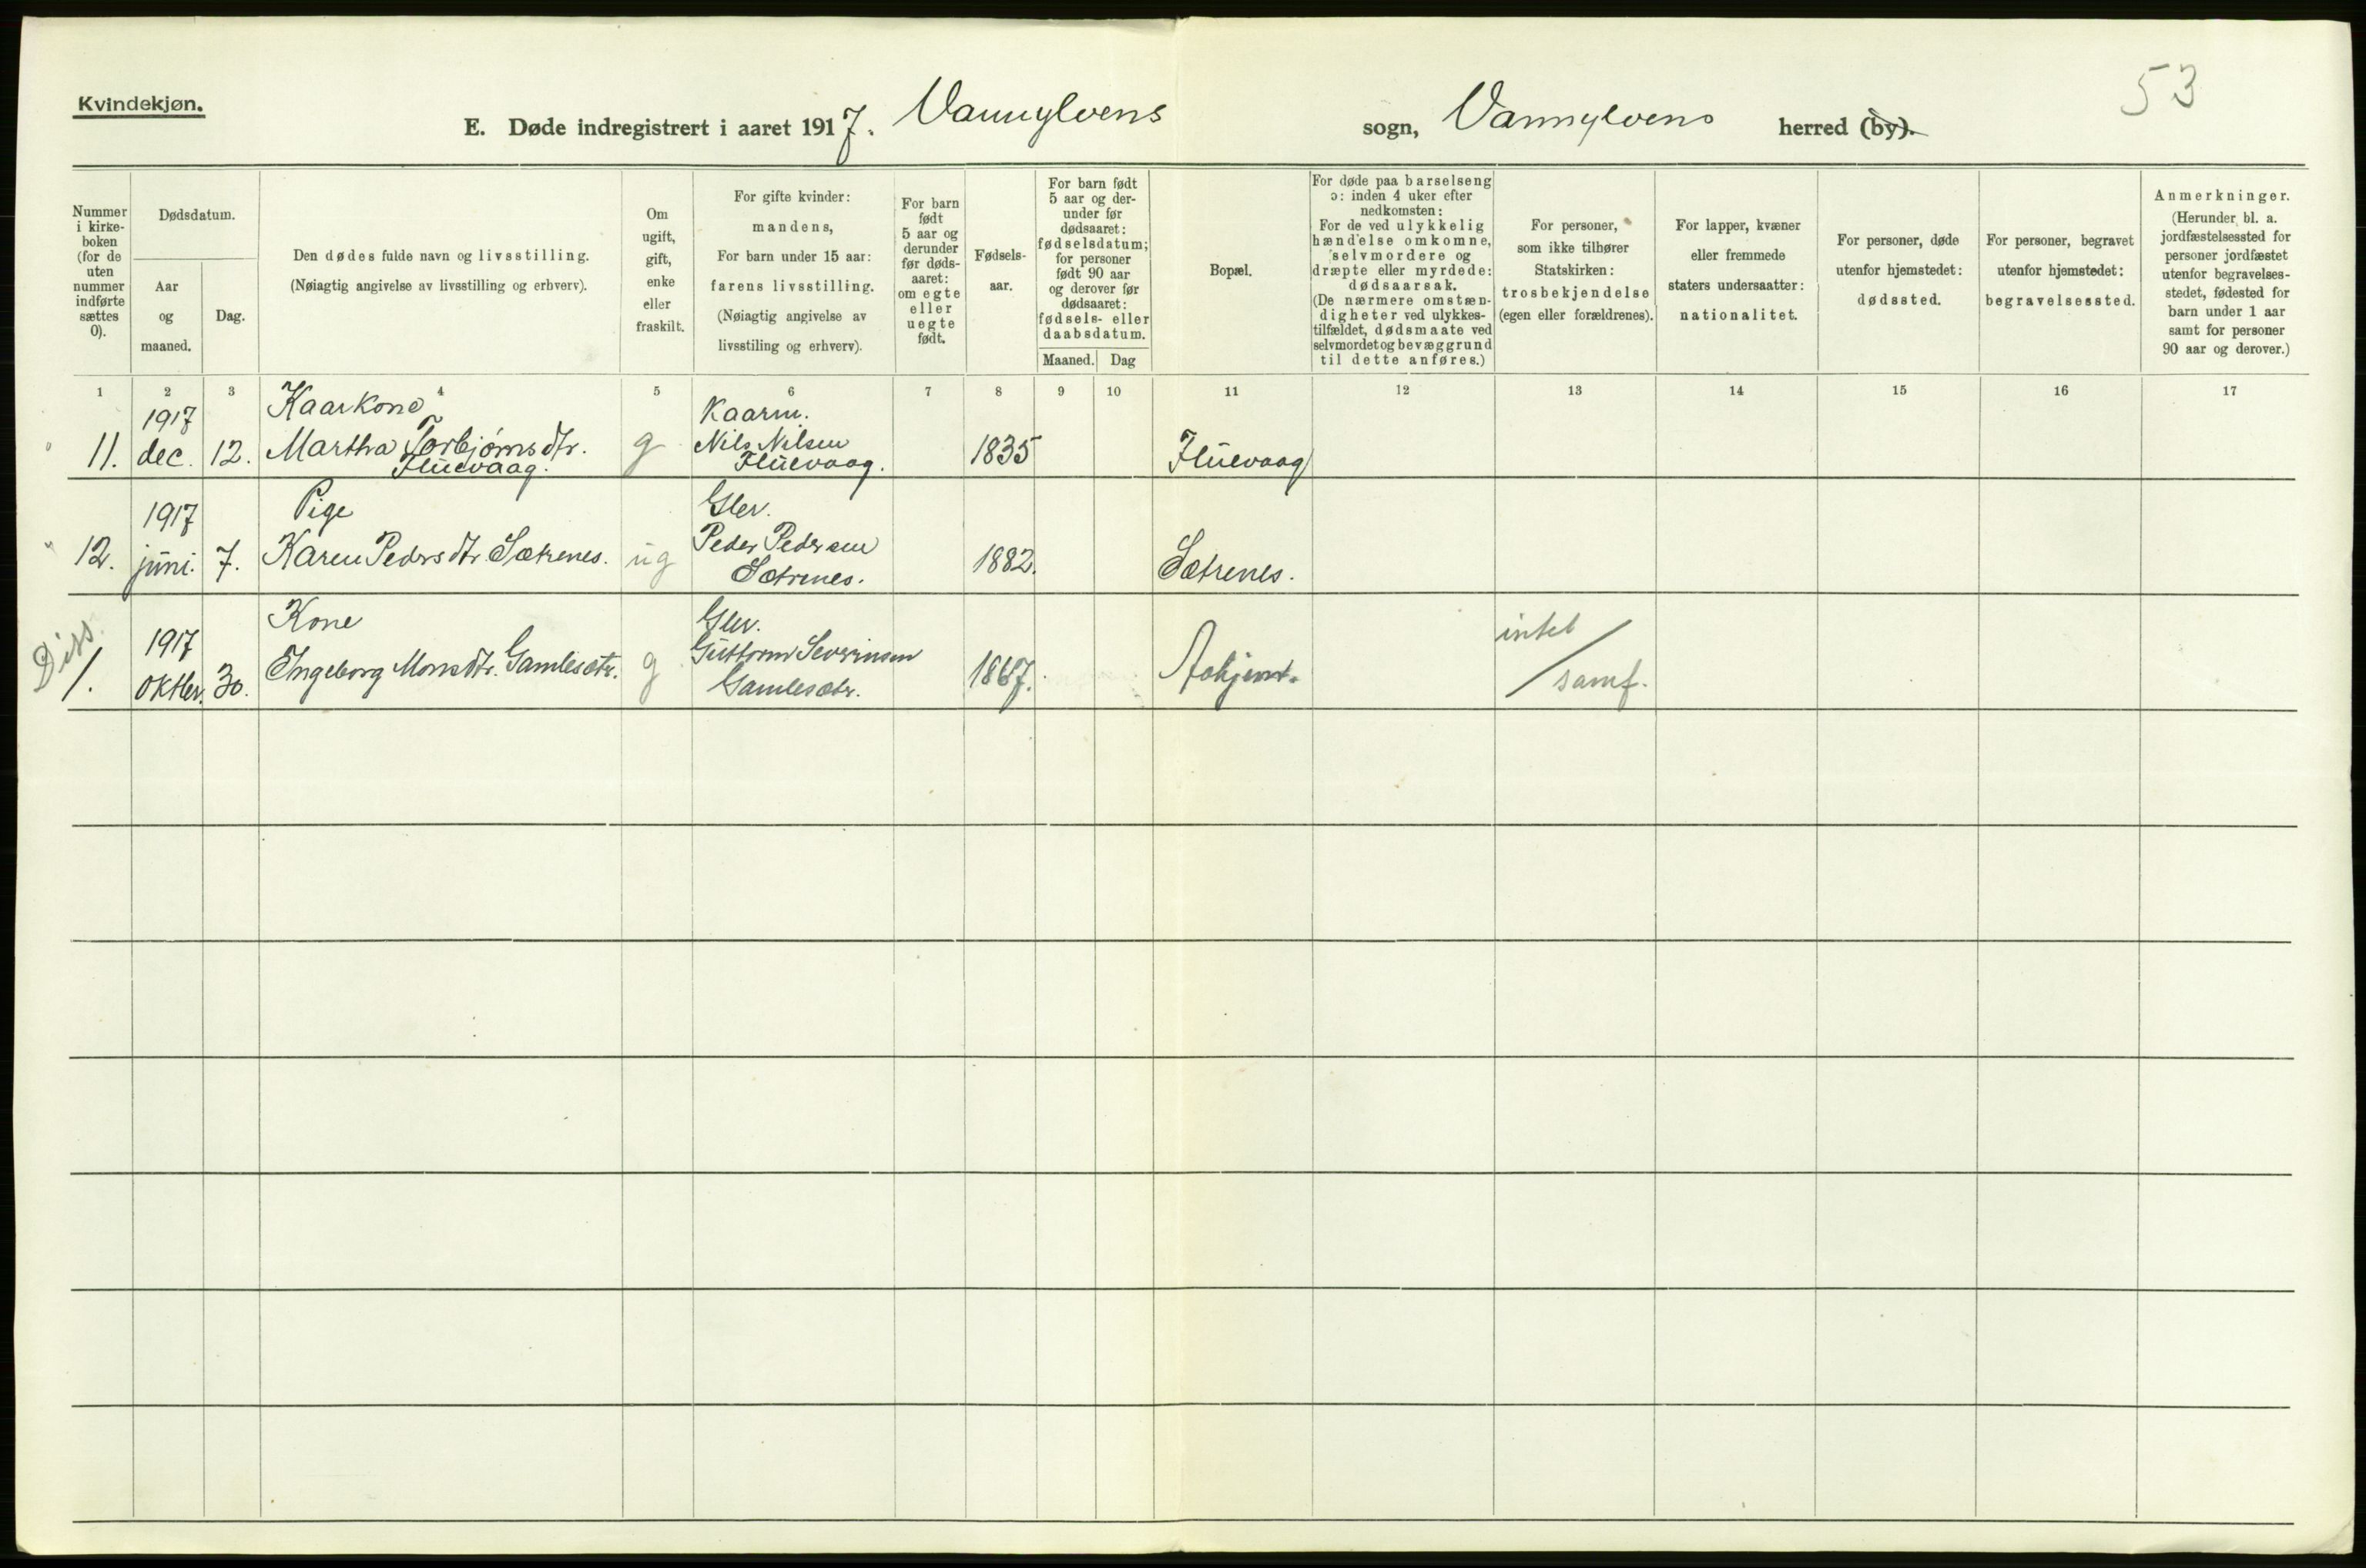 Kvindekjøn.
53
E. Døde indregistrert i aaret 1917. Vannylvens sogn, Vannylvens herred (by).
Nummer
i kirke-
boken
(for de
uten
nummer
indførte
sættes
0).
Dødsdatum.
Aar
og
maaned.
Dag.
Den dødes fulde navn og livsstilling.
(Nøiagtig angivelse av livsstilling og erhverv).
Om
ugift,
gift,
enke
eller
fraskilt.
For gifte kvinder:
mandens,
For barn under 15 aar:
farens livsstilling.
(Nøiagtig angivelse av
livsstiling og erhverv).
For barn
født
5 aar og
derunder
før døds-
aaret:
om egte
eller
uegte
født.
Fødsels-
aar.
For barn født
5 aar og der-
under før
dødsaaret:
fødselsdatum;
for personer
født 90 aar
og derover før
dødsaaret:
fødsels- eller
daabsdatum.
Maaned. Dag
Bopæl.
For døde paa barselseng
ɔ: inden 4 uker efter
nedkomsten:
For de ved ulykkelig
hændelse omkomne,
selvmordere og
dræpte eller myrdede:
dødsaarsak.
(De nærmere omstæn-
digheter ved ulykkes-
tilfældet, dødsmaate ved
selvmordet og bevæggrund
til dette anføres.)
For personer,
som ikke tilhører
Statskirken:
trosbekjendelse
(egen eller forældrenes).
For lapper, kvæner
eller fremmede
staters undersaatter:
nationalitet.
For personer, døde
utenfor hjemstedet:
dødssted.
For personer, begravet
utenfor hjemstedet:
begravelsessted.
Anmerkninger.
(Herunder bl. a.
jordfæstelsessted for
personer jordfæstet
utenfor begravelses-
stedet, fødested for
barn under 1 aar
samt for personer
90 aar og derover.)
1 2 3 4 5 6 7 8 9 10 11 12 13 14 15 16 17
1917 Kaarkone Kaarm.
11. dec. 12. Martha Torbjørnsdtr. g Nils Nilsen 1835 Flüevaag
Flüevaag. Flüevaag.
1917 Pige Glev.
12. jüni. 7. Karen Pedrsdtr. Sætrenes. üg Peder Pedersen 1882. Sætrenes.
Sætrenes.
Diss. 1917 Kone Glev. intet
1. oktbr. 30. Ingeborg Monsdtr. Gamlesætr. g Güttorm Severinsen 1867. Aahjem. samf.
Gamlesætr.